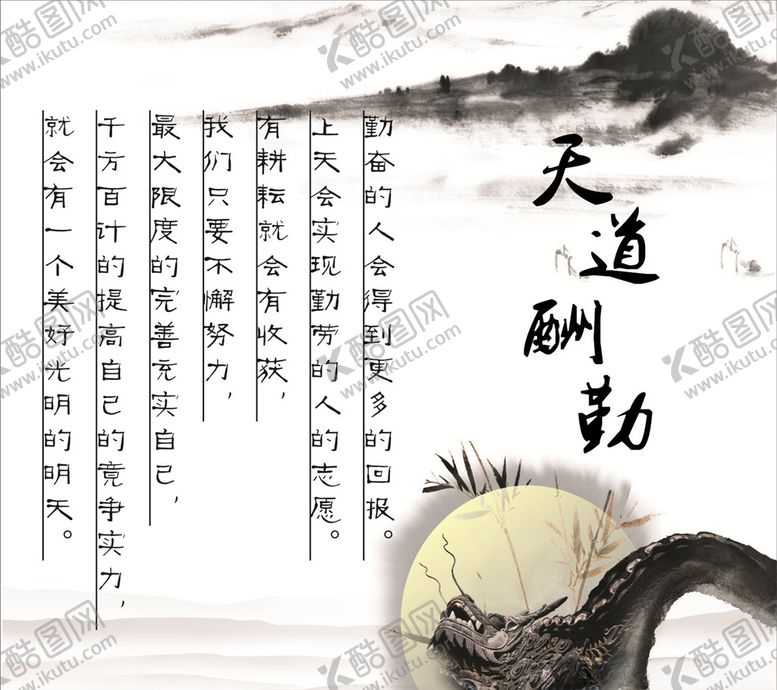 天道酬勤
勤奋的人会得到更多的回报。
上天会实现勤劳的人的志愿。
有耕耘就会有收获，
我们只要不懈努力，
最大限度的完善充实自己，
千方百计的提高自己的竞争实力，
就会有一个美好光明的明天。
酷图网
www.ikutu.com